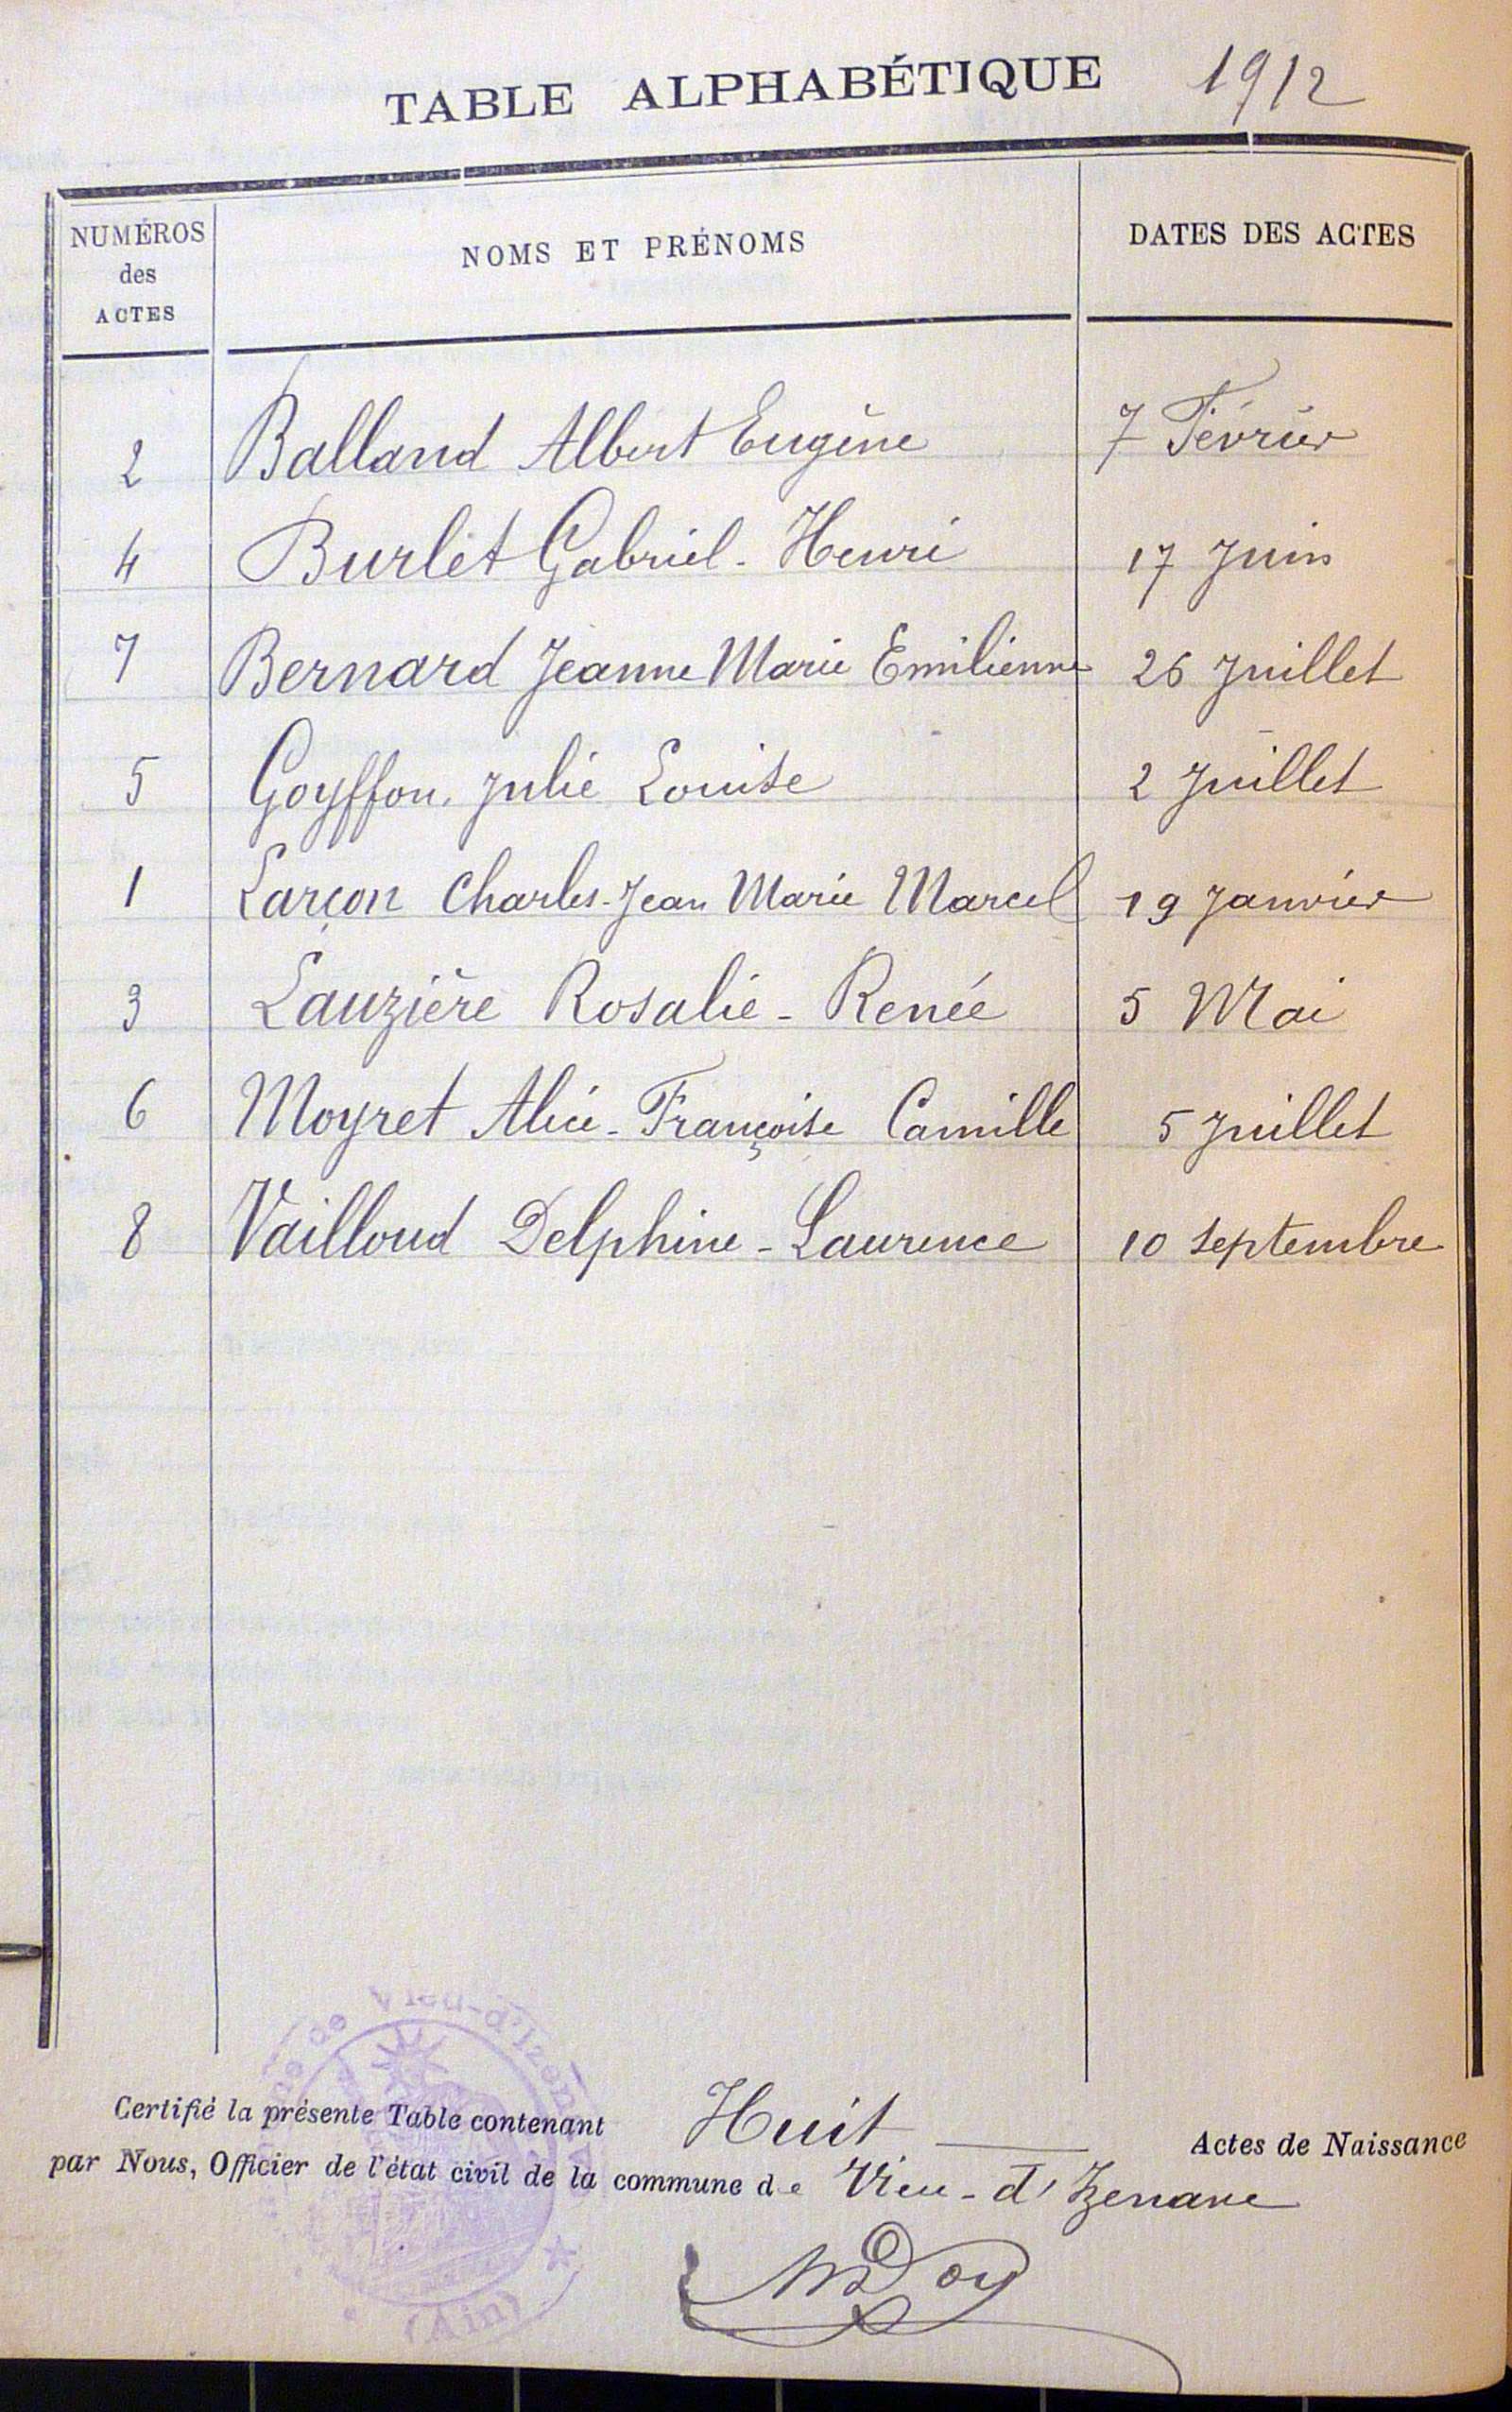 TABLE ALPHABÉTIQUE 1912
NUMÉROS des ACTES NOMS ET PRÉNOMS DATES DES ACTES
2 Balland Albert Eugène 7 Février
4 Burlet Gabriel - Henri 17 Juin
7 Bernard Jeanne Marie Emilienne 26 Juillet
5 Goyffon, Julie Louise 2 Juillet
1 Larçon Charles-Jean Marie Marcel 19 Janvier
3 Lauzière Rosalie - Renée 5 Mai
6 Moyret Alice - Françoise Camille 5 Juillet
8 Vailloud Delphine - Laurence 10 septembre
Certifié la présente Table contenant Huit Actes de Naissance
par Nous, Officier de l'état civil de la commune de Vieu - d'Izenave
de Vieu-d'Izen
(Ain)